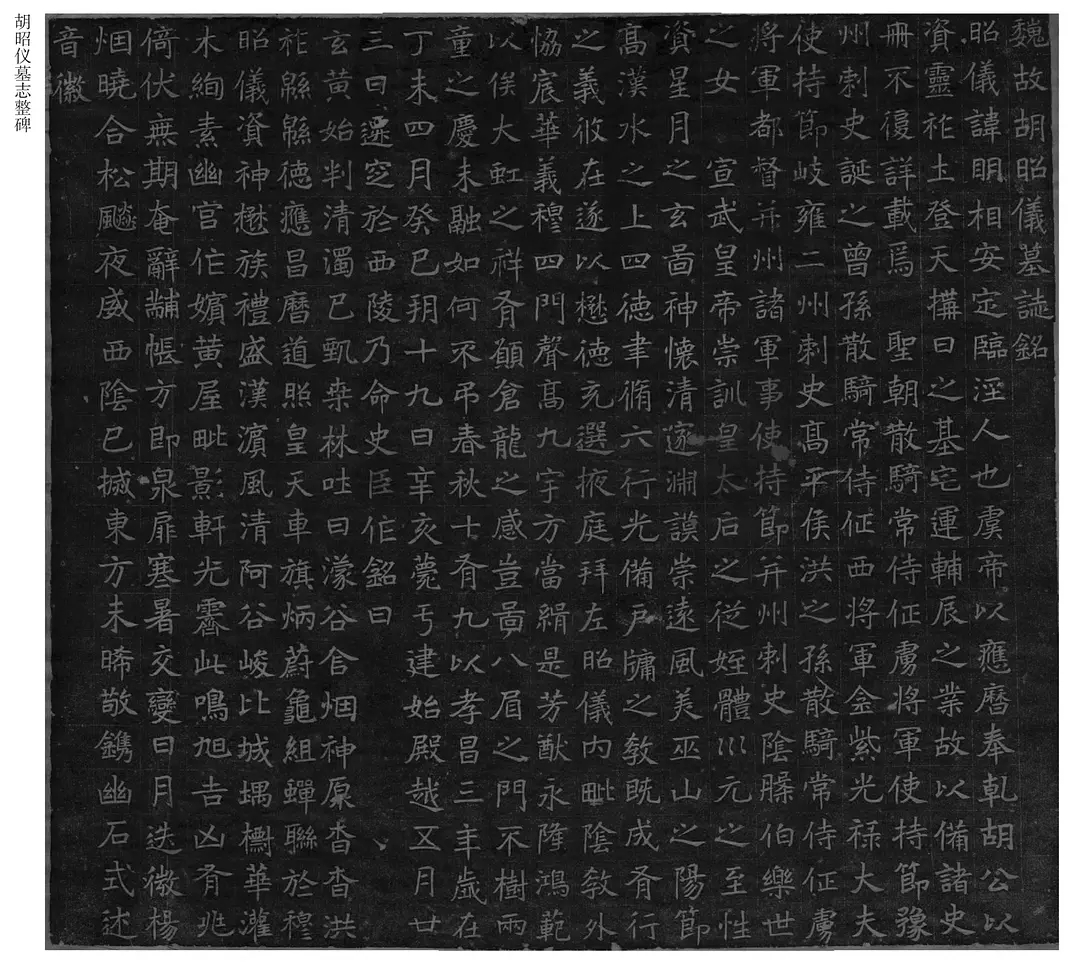 胡昭仪墓志整碑
魏故胡昭儀墓誌銘
昭儀諱明相安定臨淫人也虞帝以應曆奉乹胡公以
資靈祚土登天搆曰之基宅運輔辰之業故以備諸史
冊不復詳載焉聖朝散騎常侍征虜將軍使持節豫
州刺史誕之曾孫散騎常侍征西將軍金紫光祿大夫
使持節岐雍二州刺史高平侯洪之孫散騎常侍征虜
將軍都督并州諸軍事使持節并州刺史陰槃伯樂世
之女宣武皇帝崇訓皇太后之從姪體川元之至性
資星月之玄啚神懷清邃淵謨崇遠風美巫山之陽節
高漢水之上四德聿脩六行光備戶牖之教旣成有行
之義攸在遂以懋德充選掖庭拜左昭儀內毗陰教外
恊宸華義穆四門聲高九宇方當緝是芳猷永隆鴻範
以俟大虹之祥有願倉龍之感豈啚八眉之門不樹兩
童之慶未融如何不弔春秋十有九以孝昌三年歲在
丁未四月癸巳朔十九日辛亥薨于建始殿越五月廿
三曰遷窆於西陵乃命史臣作銘曰
玄黃始判清濁已甄桒林吐曰濛谷含烟神原杳杳洪
祚緜緜德應昌曆道照皇天車旗炳蔚龜組蟬聯於穆
昭儀資神懋族禮盛漢濱風清阿谷峻比城堣櫹華灌
木絢素幽宮作嬪黃屋毗影軒光霽此鳴旭吉凶有兆
倚伏無期奄辭黼帳方即泉扉寒暑交變日月迭微楊
烟曉合松飈夜威西陰已搣東方未晞敬鐫幽石式述
音徽